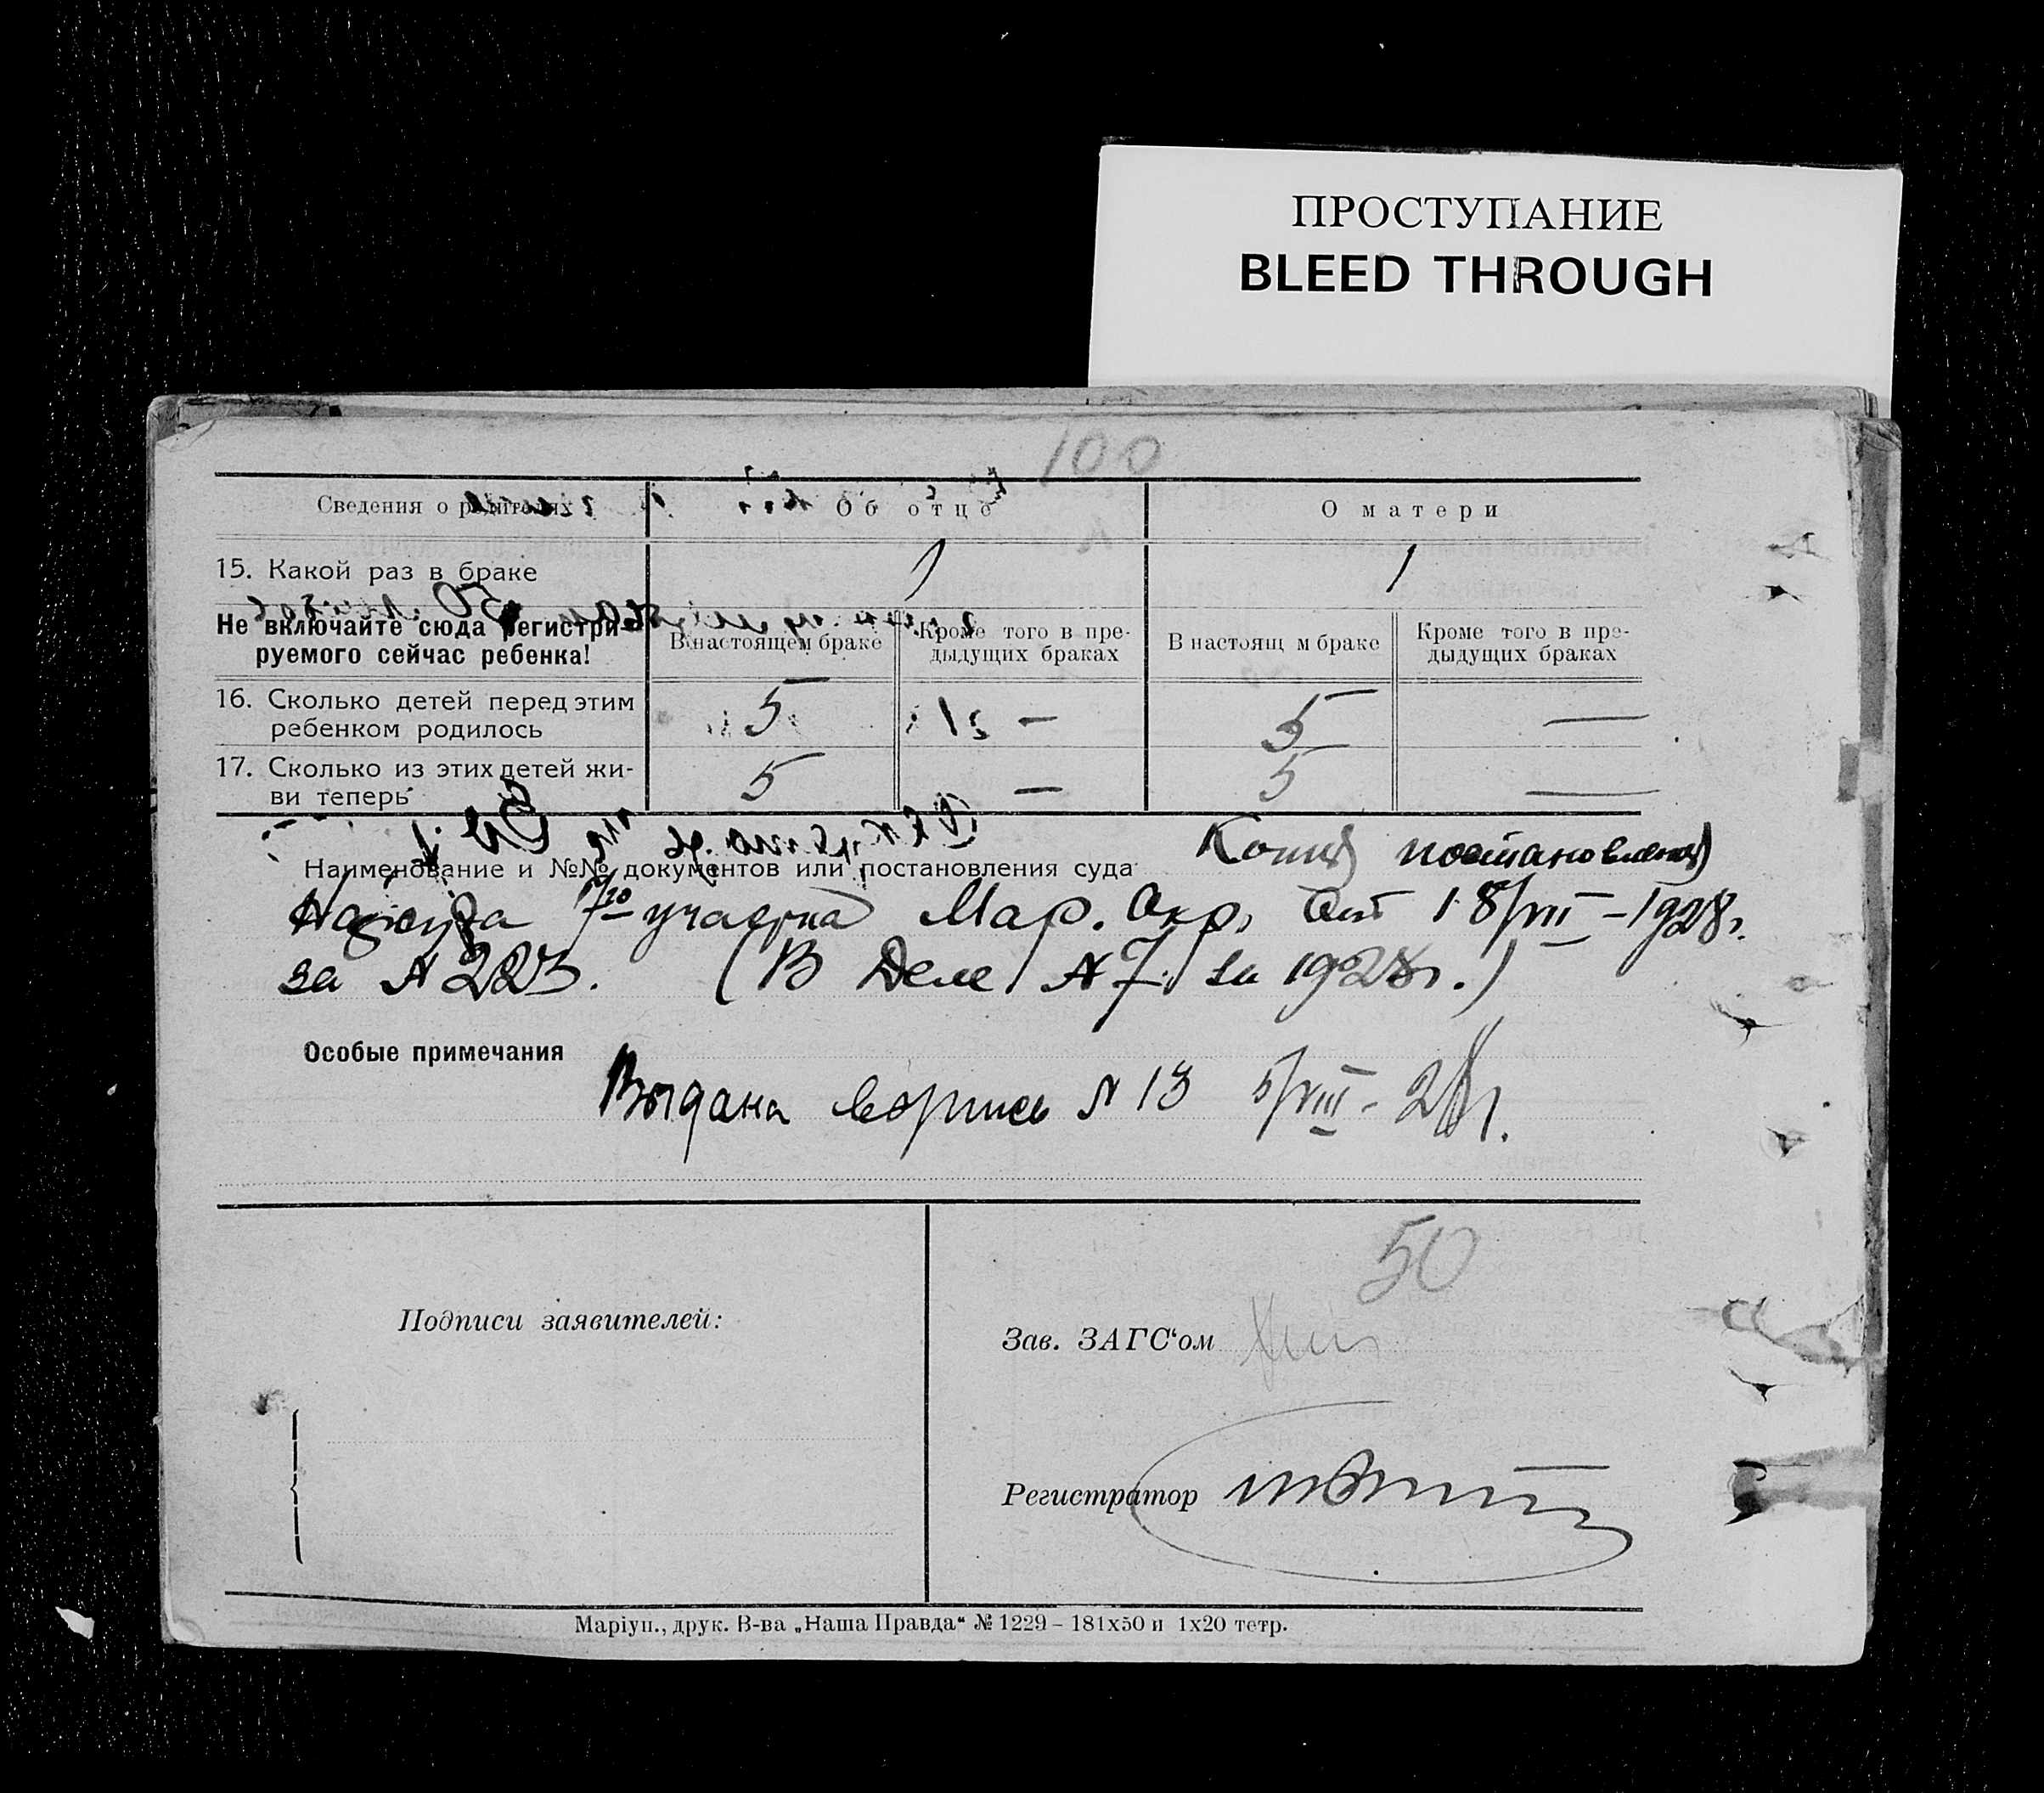 ПРОСТУПАНИЕ
BLEED THROUGH
100
Сведения о родителях Об отце О матери
15. Какой раз в браке 1 1
Не включайте сюда регистри-
руемого сейчас ребенка!
В настоящем браке Кроме того в пре-
дыдущих браках
В настоящ м браке Кроме того в пре-
дыдущих браках
16. Сколько детей перед этим
ребенком родилось 5 — 5 —
17. Сколько из этих детей жи-
ви теперь 5 — 5 —
Наименование и №№ документов или постановления суда Копия постановления
Нарсуда 7го участка Мар. Окр. от 18/VII – 1928 г.
за № 223. (В Деле № 7 за 1928 г.)
Особые примечания
Выдана № 13 5/VIII - 28 г.
50
Подписи заявителей:
Зав. ЗАГС‘ом
Регистратор
Маріуп., друк. В-ва „Наша Правда“ № 1229 – 181х50 и 1х20 тетр.